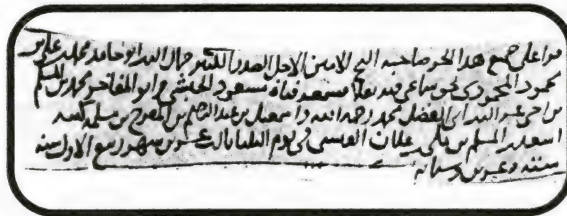 قرأ علي جميع هذا الجزء صاحبه الشيخ الامين الاجل الصدر الكبير جمال الدين ابو حامد محمد بن علي بن
محمود المحمودي بحق سماعي فيه نقلا فسمعه فتاه مسعود الحبشي وابو المفاخر محمد بن المسلم
بن اخي عز الدين ابي الفضل محمد رحمه الله واسمعيل بن عبد الله بن المفرج بن مسلمة كتبه
اسعد بن المسلم بن مكي بن علان القيسي في يوم الثلثا ثالث عشرين شهر ربيع الاول سنة
ستة وعشرين وستمائة